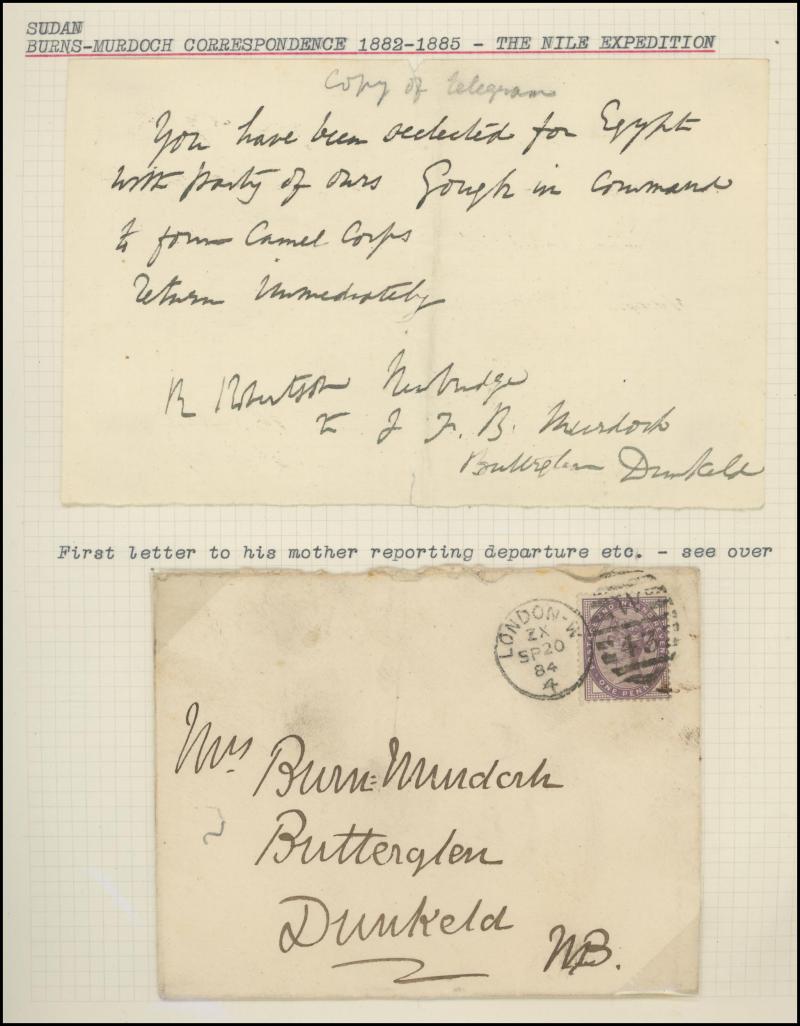 SUDAN
BURNS-MURDOCH CORRESPONDENCE 1882-1885 - THE NILE EXPEDITION
Copy of telegram
You have been selected for Egypt
with party of ours Gough in command
to form Camel Corps
return immediately
R Robertson Newbridge
to J F. B. Murdoch
Butterglen Dunkeld
First letter to his mother reporting departure etc. - see over
LONDON-W
ZX
SP20
84
4
W
43
ONE PENNY
Mrs Burn=Murdoch
Butterglen
Dunkeld
N.B.